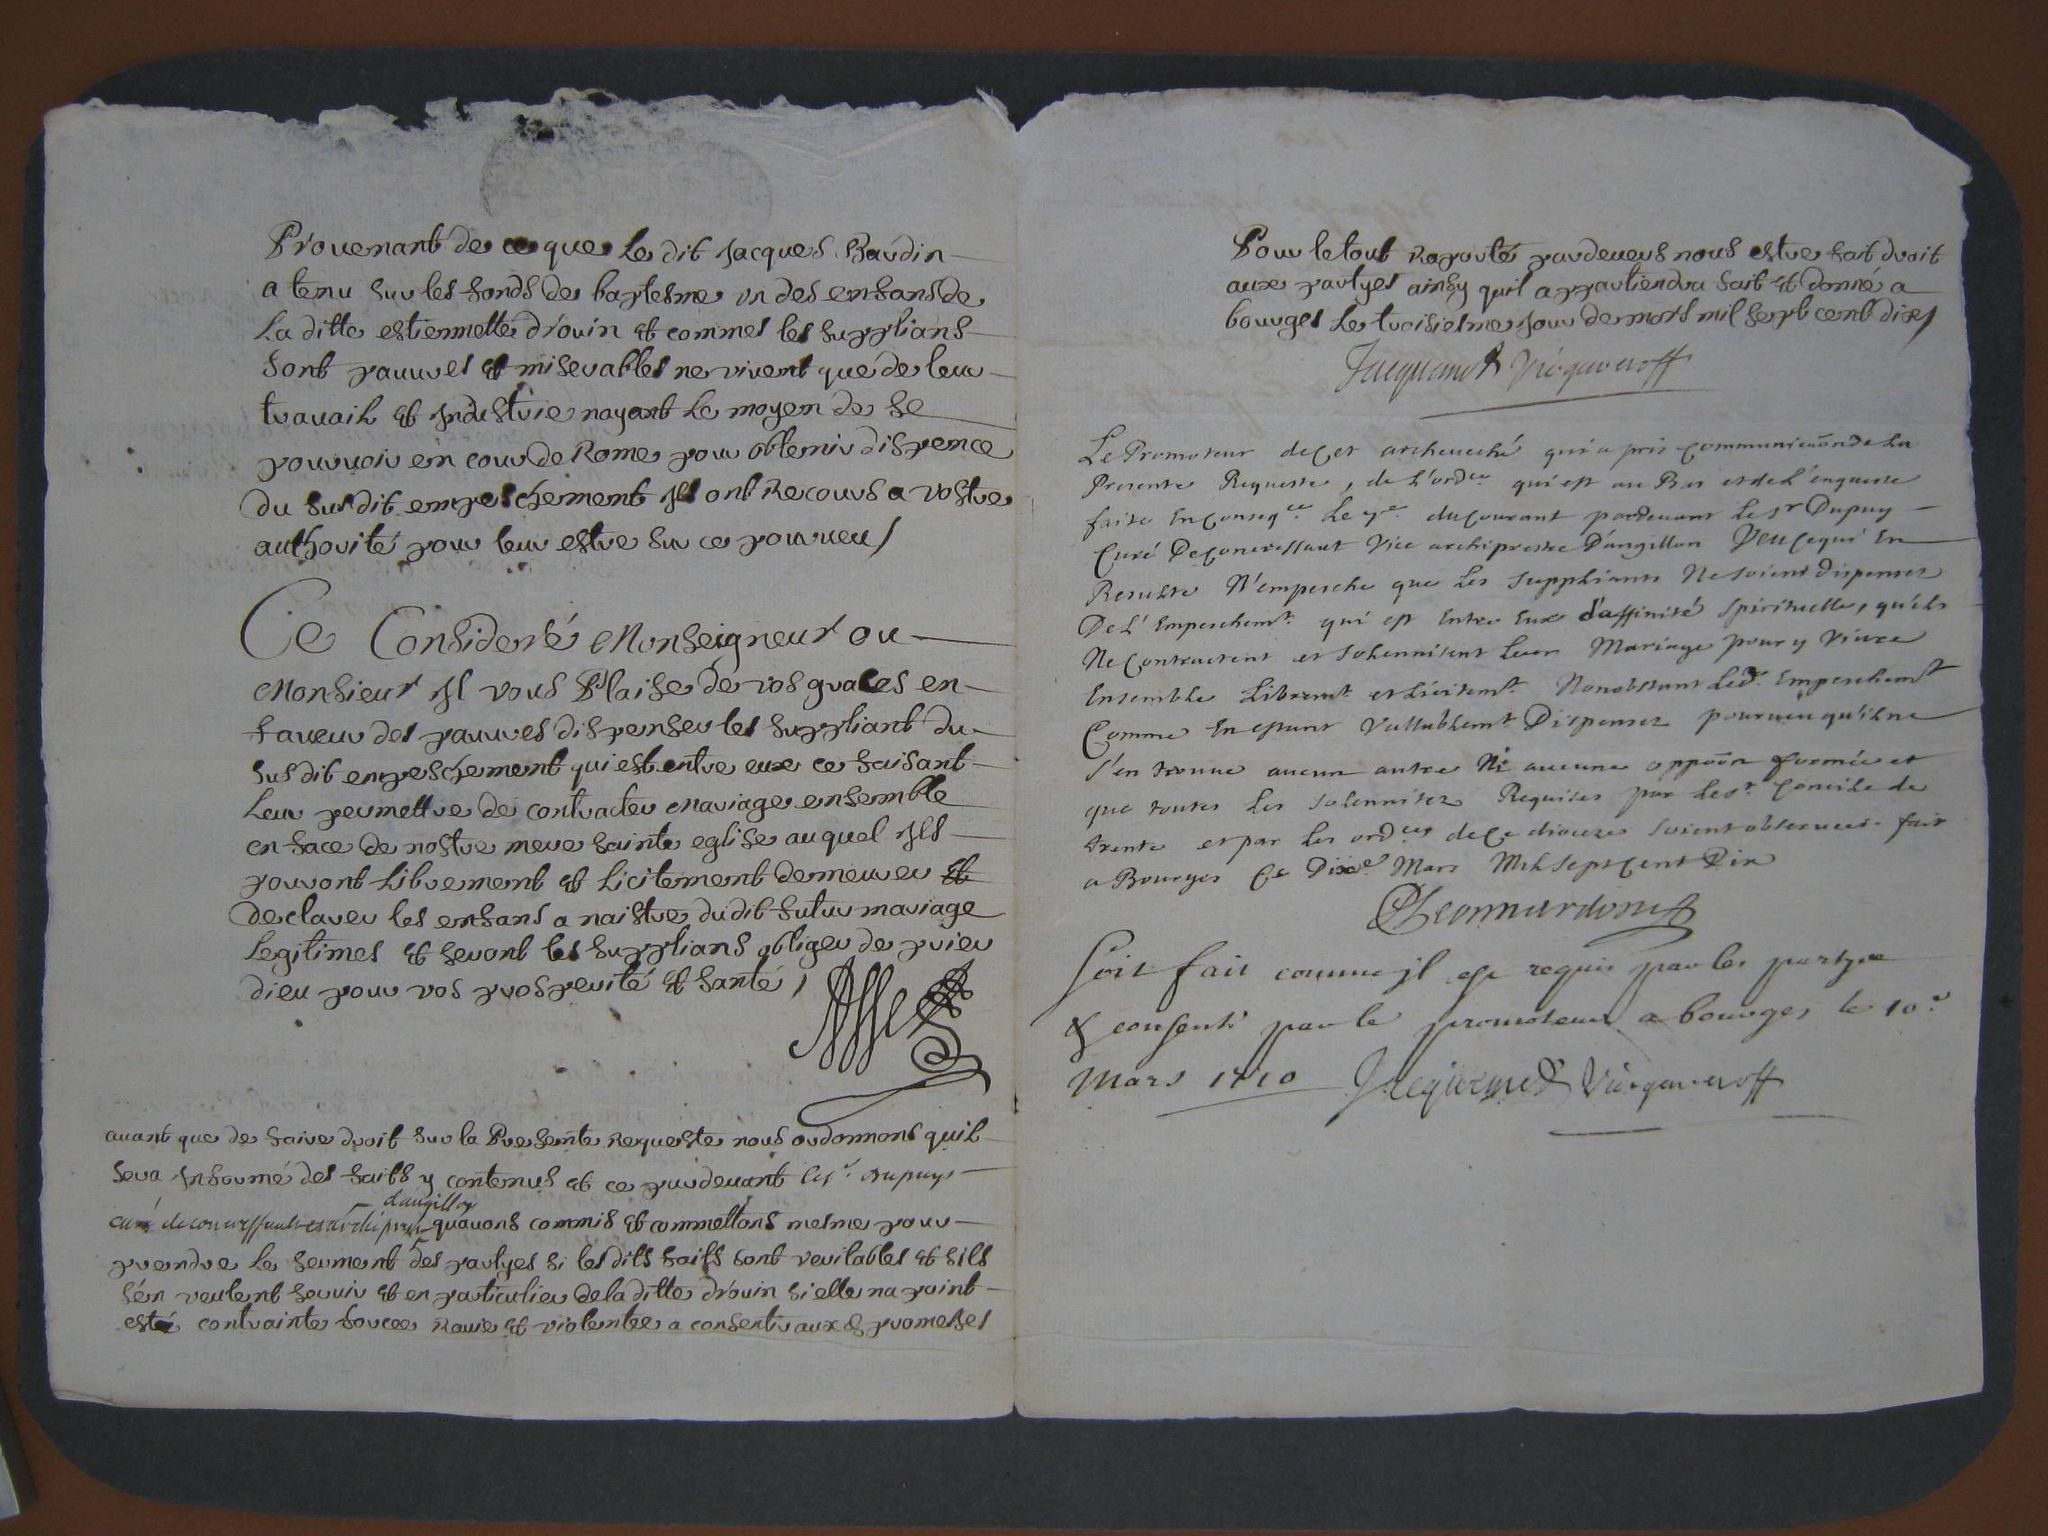 Prouenant de ce que le dit Jacques Baudin
a tenu sur les fonds de baptesme un des enfans de
la ditte estiennette drouin et commes les supplians
sont pauures et miserables ne vivent que de leur
trauail et Industrie nayant le moyen de se
pouruoir en cour de Rome pour obtenir dispence
du susdit empeschement Ils ont Recours a vostre
authorité pour leur estre sur ce pourueu
Ce Consideré Monseigneur ou
Monsieur Il vous Plaise de vos graces en
faueur des pauures dispenser les suppliant du
susdit empeschement qui est entre eux ce faisant
leur permettre de contracter mariage ensemble
en face de nostre mere sainte eglise auquel Ils
pouront librement et licitement demeurer et
declarer les enfans a naistre dudit futur mariage
legitimes et seront les supplians obliger de prier
dieu pour vos prosperité et santé
auant que de faire droit sur la Presente Requeste nous ordonnons quil
sera Informé des faits y contenus et ce pardeuant le sr. dupuys
dangillon
curé de concressault et archipretre quauons commis et commettons mesme pour
prendre le serment des partyes si les dits faits sont veritables et sils
sen veulent seruir et en particulier de la ditte drouin si elle na point
esté contrainte forcee Rauie et violentee a consentir aux d promesses
Pour le tout Raporté pardeuers nous estre fait droit
aux partyes ainsy quil appartiendra fait et donné a
bourges le troisiesme Jour de mars mil sept cent dix
Le Promoteur de Cet archeueché qui a pris Communicaõn de la
Presente Requeste, de L'ordce qui est au Bas et de L'enqueste
faite En Conseqce Le 7e du Courant pardeuant Le sr Dupuy
Curé De Concressaut Vice archiprestre D'angillon Veu Ce qui En
Resulte N'empesche que Les Supplians Ne soient dispenses
De L'Empeschemt. qui est Entre Eux d'affinité Spirituelle, qu'ils
Ne Contractent et solennisent Leur Mariage pour y Viure
Ensemble Libremt. et Licitemt. Nonobstant Led. Empeschemt
Comme En estant Vallablemt Dispensez pourueu qu'il ne
s'en trouue aucun autre Ni aucune oppoõn formée et
que toutes Les solennitez Requises par Le st. Concile de
trente et par les ordces de Ce diocese soient obseruees. fait
a Bourges Ce Dixe Mars Mil sept Cent Dix
Soit fait comme il est requis par les partyes
& consenti par le promoteur a bourges le 10e
Mars 1710